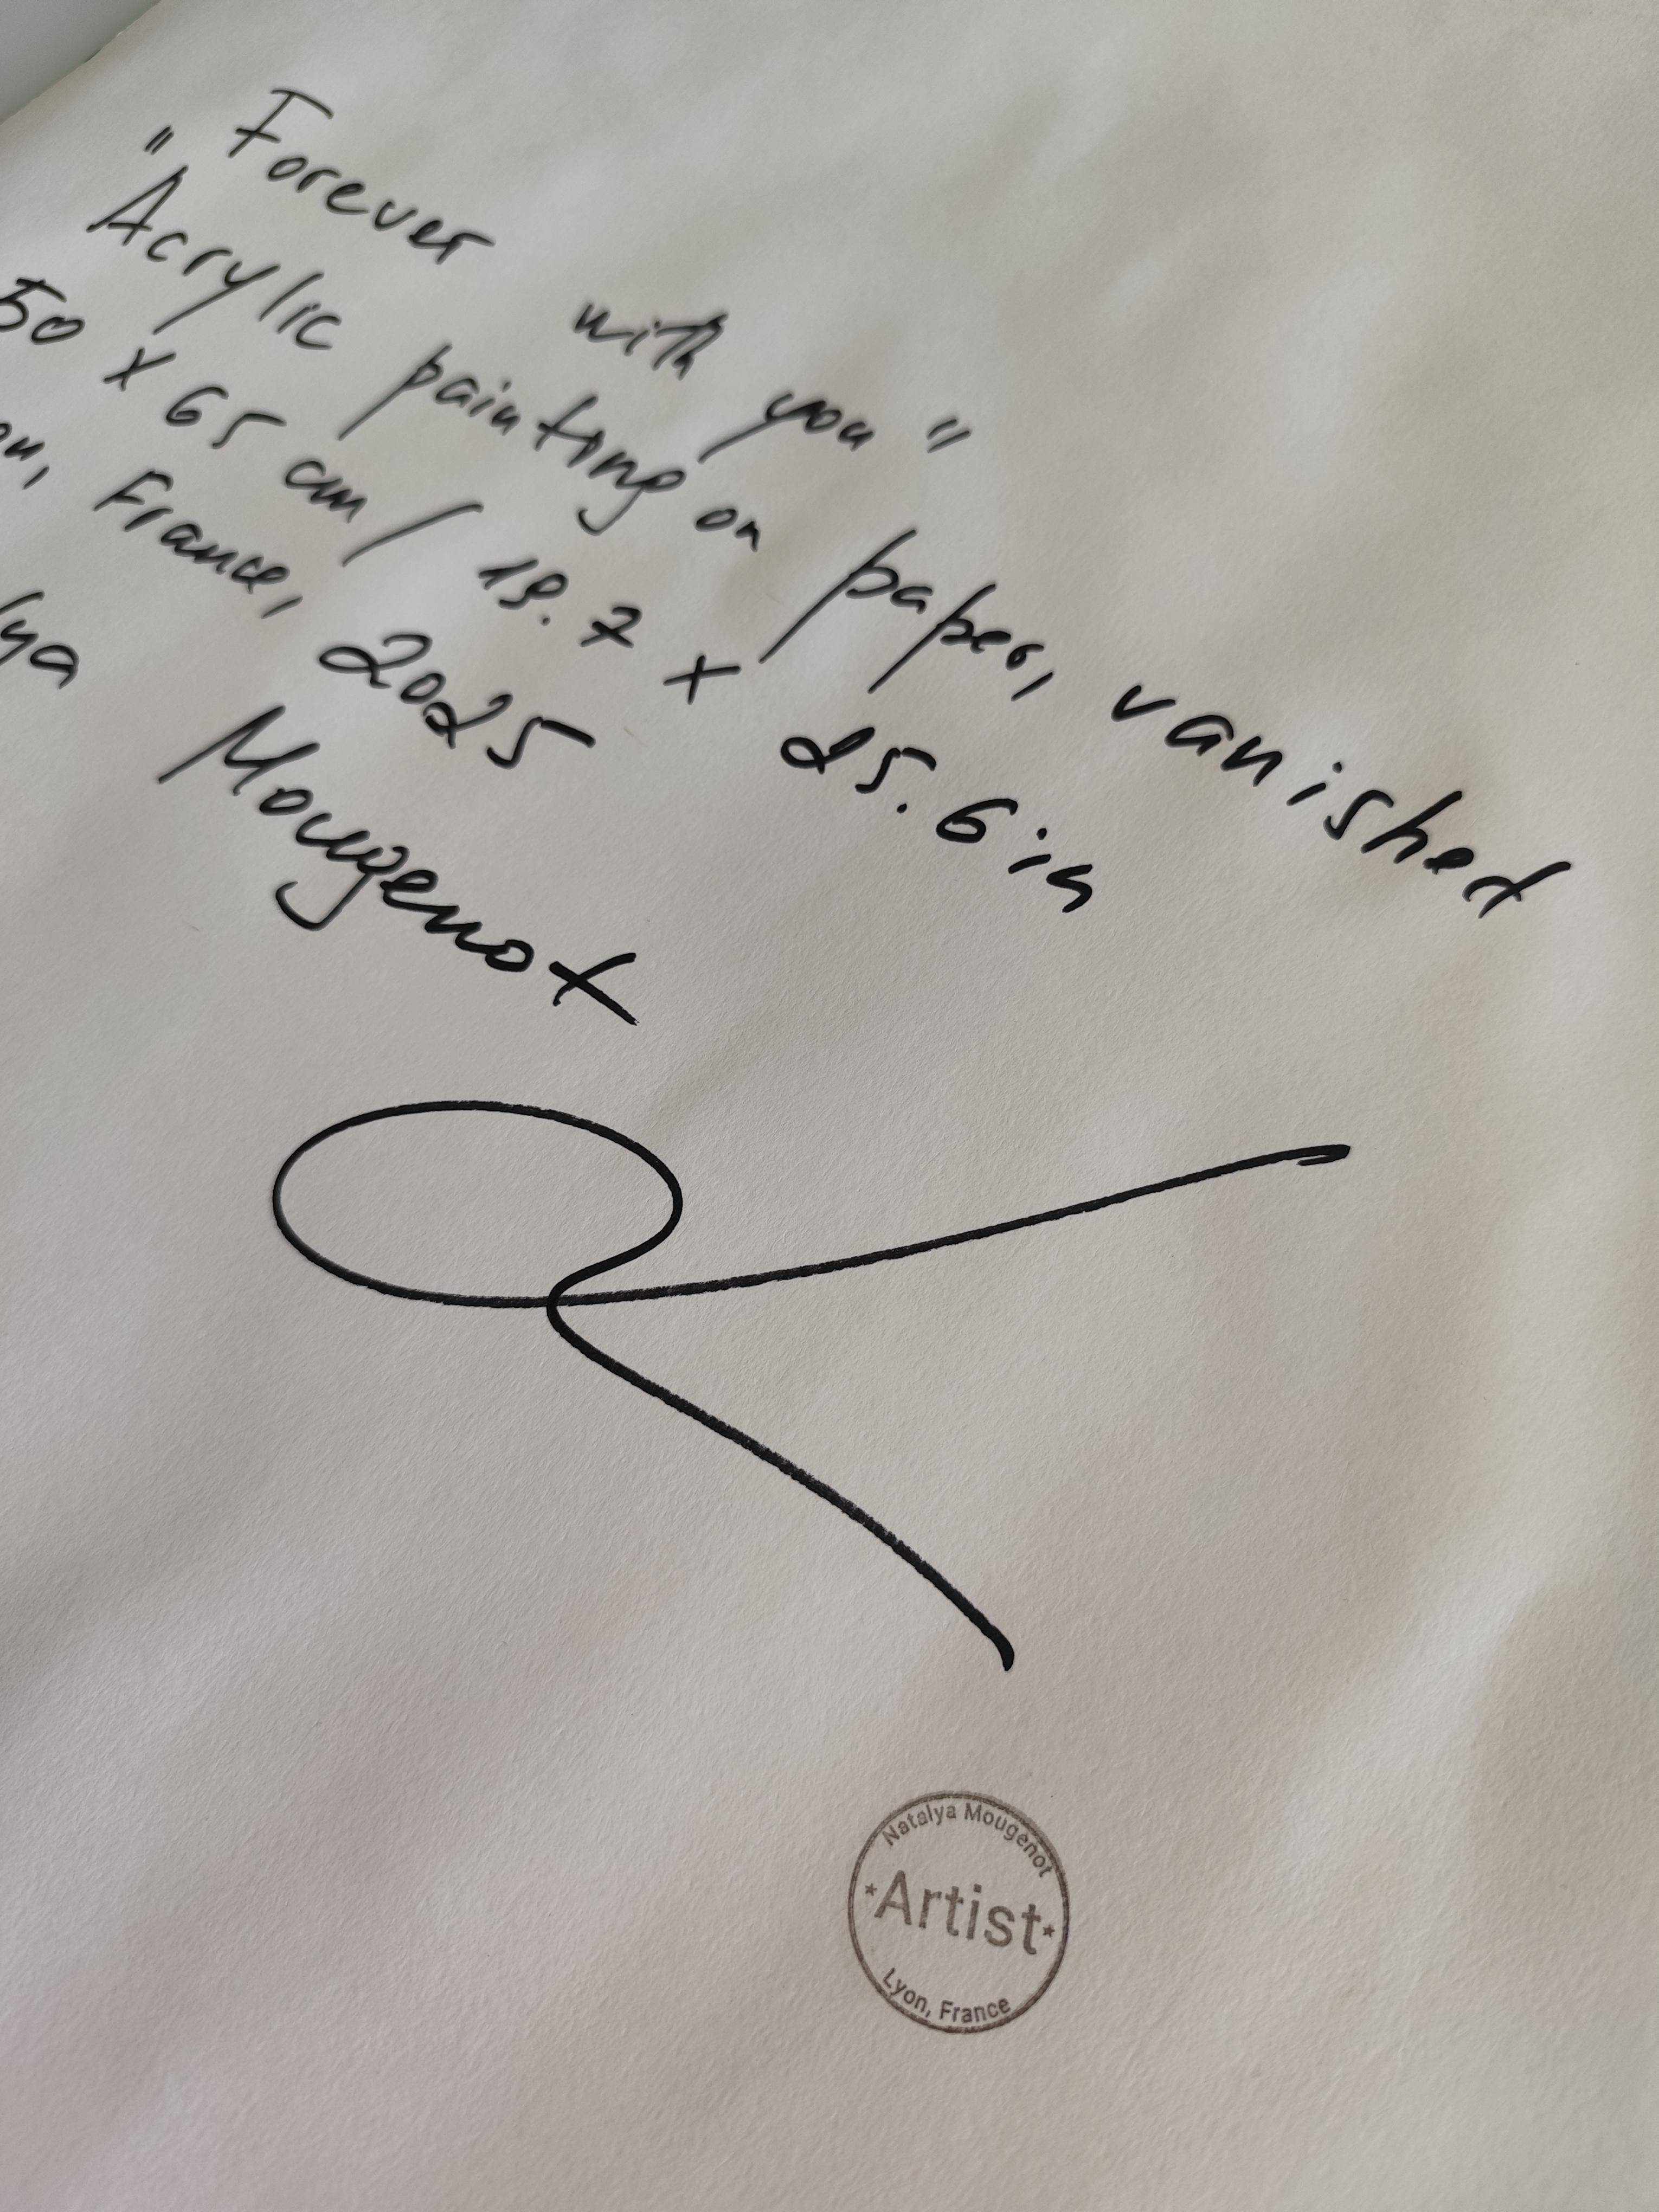 "Forever with you"
Acrylic painting on paper, vanished
50 x 65 cm / 19.7 x 25.6 in
on, France, 2025
lya Mougenot
Natalya Mougenot
*Artist*
Lyon, France